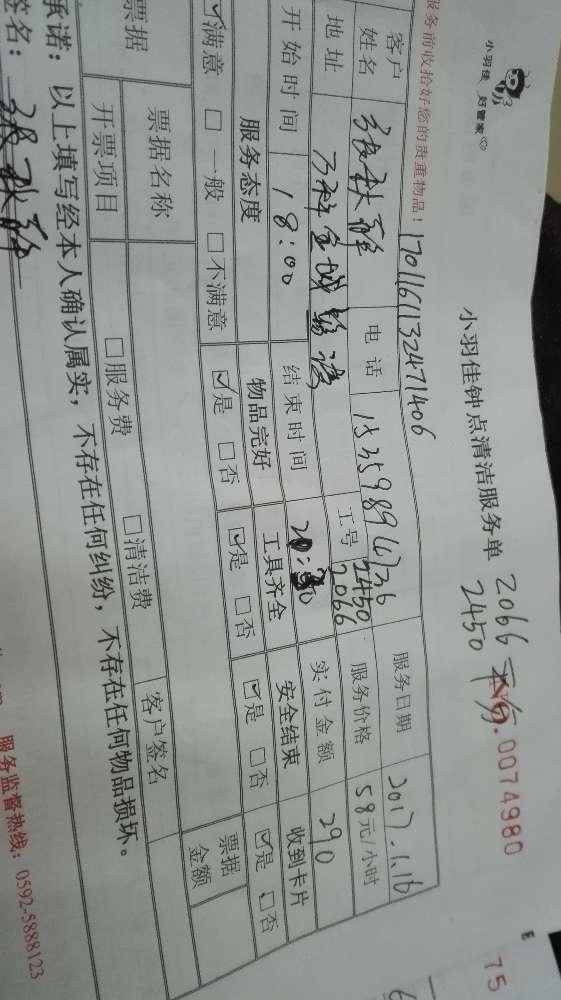 小羽佳 好管家
小羽佳钟点清洁服务单
2066
2450
No.0074980
服务前收拾好您的贵重物品！
1701161132471406
客户姓名
电话
服务日期 2017.1.16
地址
工号 2450
2066
服务价格 58元/小时
开始时间 18:00
结束时间
实付金额 290
服务态度 物品完好 工具齐全 安全结束 收到卡片
☑满意 □一般 □不满意 ☑是 □否 ☑是 □否 ☑是 □否 ☑是 □否
票据 票据名称 □服务费 □清洁费 票据金额
开票项目 客户签名
承诺：以上填写经本人确认属实，不存在任何纠纷，不存在任何物品损坏。
签名：
服务监督热线：0592-5888123
E
75